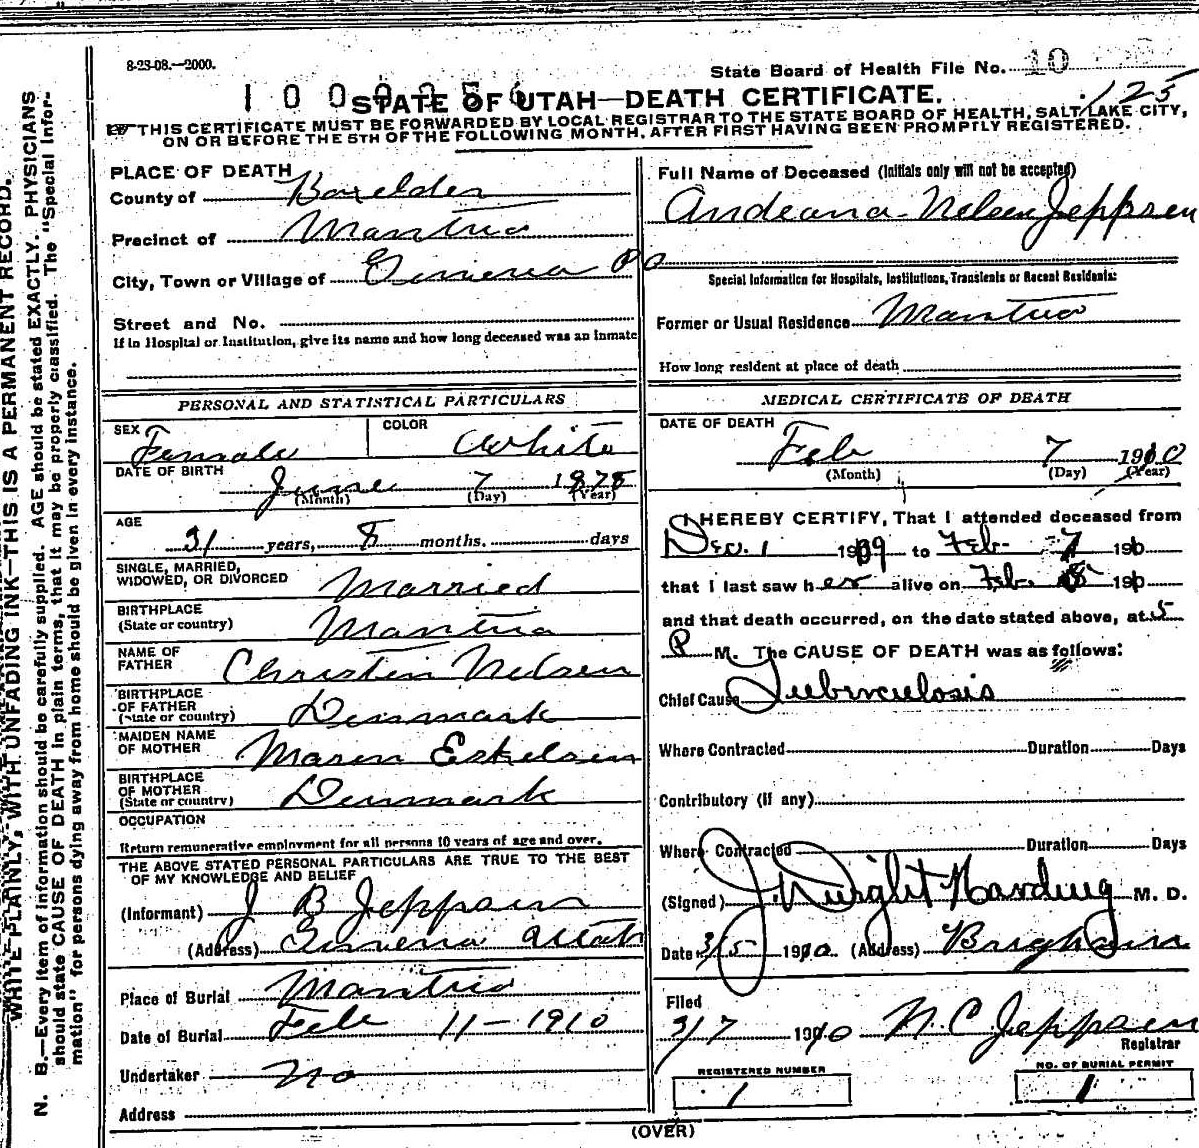 8-23-08.—2000.
State Board of Health File No. 10
125
STATE OF UTAH—DEATH CERTIFICATE.
THIS CERTIFICATE MUST BE FORWARDED BY LOCAL REGISTRAR TO THE STATE BOARD OF HEALTH, SALT LAKE CITY,
ON OR BEFORE THE 5TH OF THE FOLLOWING MONTH, AFTER FIRST HAVING BEEN PROMPTLY REGISTERED.
PLACE OF DEATH
County of Boxelder
Precinct of Mantua
City, Town or Village of P O
Street and No.
If in Hospital or Institution, give its name and how long deceased was an inmate
PERSONAL AND STATISTICAL PARTICULARS
SEX Female COLOR White
DATE OF BIRTH
June 7 1878
(Month) (Day) (Year)
AGE
31 years, 8 months. days
SINGLE, MARRIED,
WIDOWED, OR DIVORCED Married
BIRTHPLACE
(State or country) Mantua
NAME OF
FATHER Christen Nelsen
BIRTHPLACE
OF FATHER
(State or country) Denmark
MAIDEN NAME
OF MOTHER Maren Eskelsen
BIRTHPLACE
OF MOTHER
(State or country) Denmark
OCCUPATION
Return remunerative employment for all persons 10 years of age and over.
THE ABOVE STATED PERSONAL PARTICULARS ARE TRUE TO THE BEST
OF MY KNOWLEDGE AND BELIEF
(Informant) J B Jeppsen
(Address) Utah
Place of Burial Mantua
Date of Burial Feb 11-1910
Undertaker No
Address
Full Name of Deceased (Initials only will not be accepted)
Andeana Nelsen Jeppsen
Special Information for Hospitals, Institutions, Transients or Recent Residents:
Former or Usual Residence Mantua
How long resident at place of death
MEDICAL CERTIFICATE OF DEATH
DATE OF DEATH
Feb 7 1910
(Month) (Day) (Year)
I HEREBY CERTIFY, That I attended deceased from
Dec. 1 1909 to Feb. 7 1910
that I last saw her alive on Feb. 1910
and that death occurred, on the date stated above, at 5
P M. The CAUSE OF DEATH was as follows:
Chief Cause Tuberculosis
Where Contracted Duration Days
Contributory (if any)
Where Contracted Duration Days
(Signed) J. Dwight Harding M. D.
Date 3/5 1910 (Address) Brigham
Filed
3/7 1910 N. C. Jeppsen
Registrar
REGISTERED NUMBER
1
NO. OF BURIAL PERMIT
1
(OVER)
WRITE PLAINLY, WITH UNFADING INK—THIS IS A PERMANENT RECORD.
N. B.—Every item of information should be carefully supplied. AGE should be stated EXACTLY. PHYSICIANS
should state CAUSE OF DEATH in plain terms, that it may be properly classified. The "Special Infor-
mation" for persons dying away from home should be given in every instance.